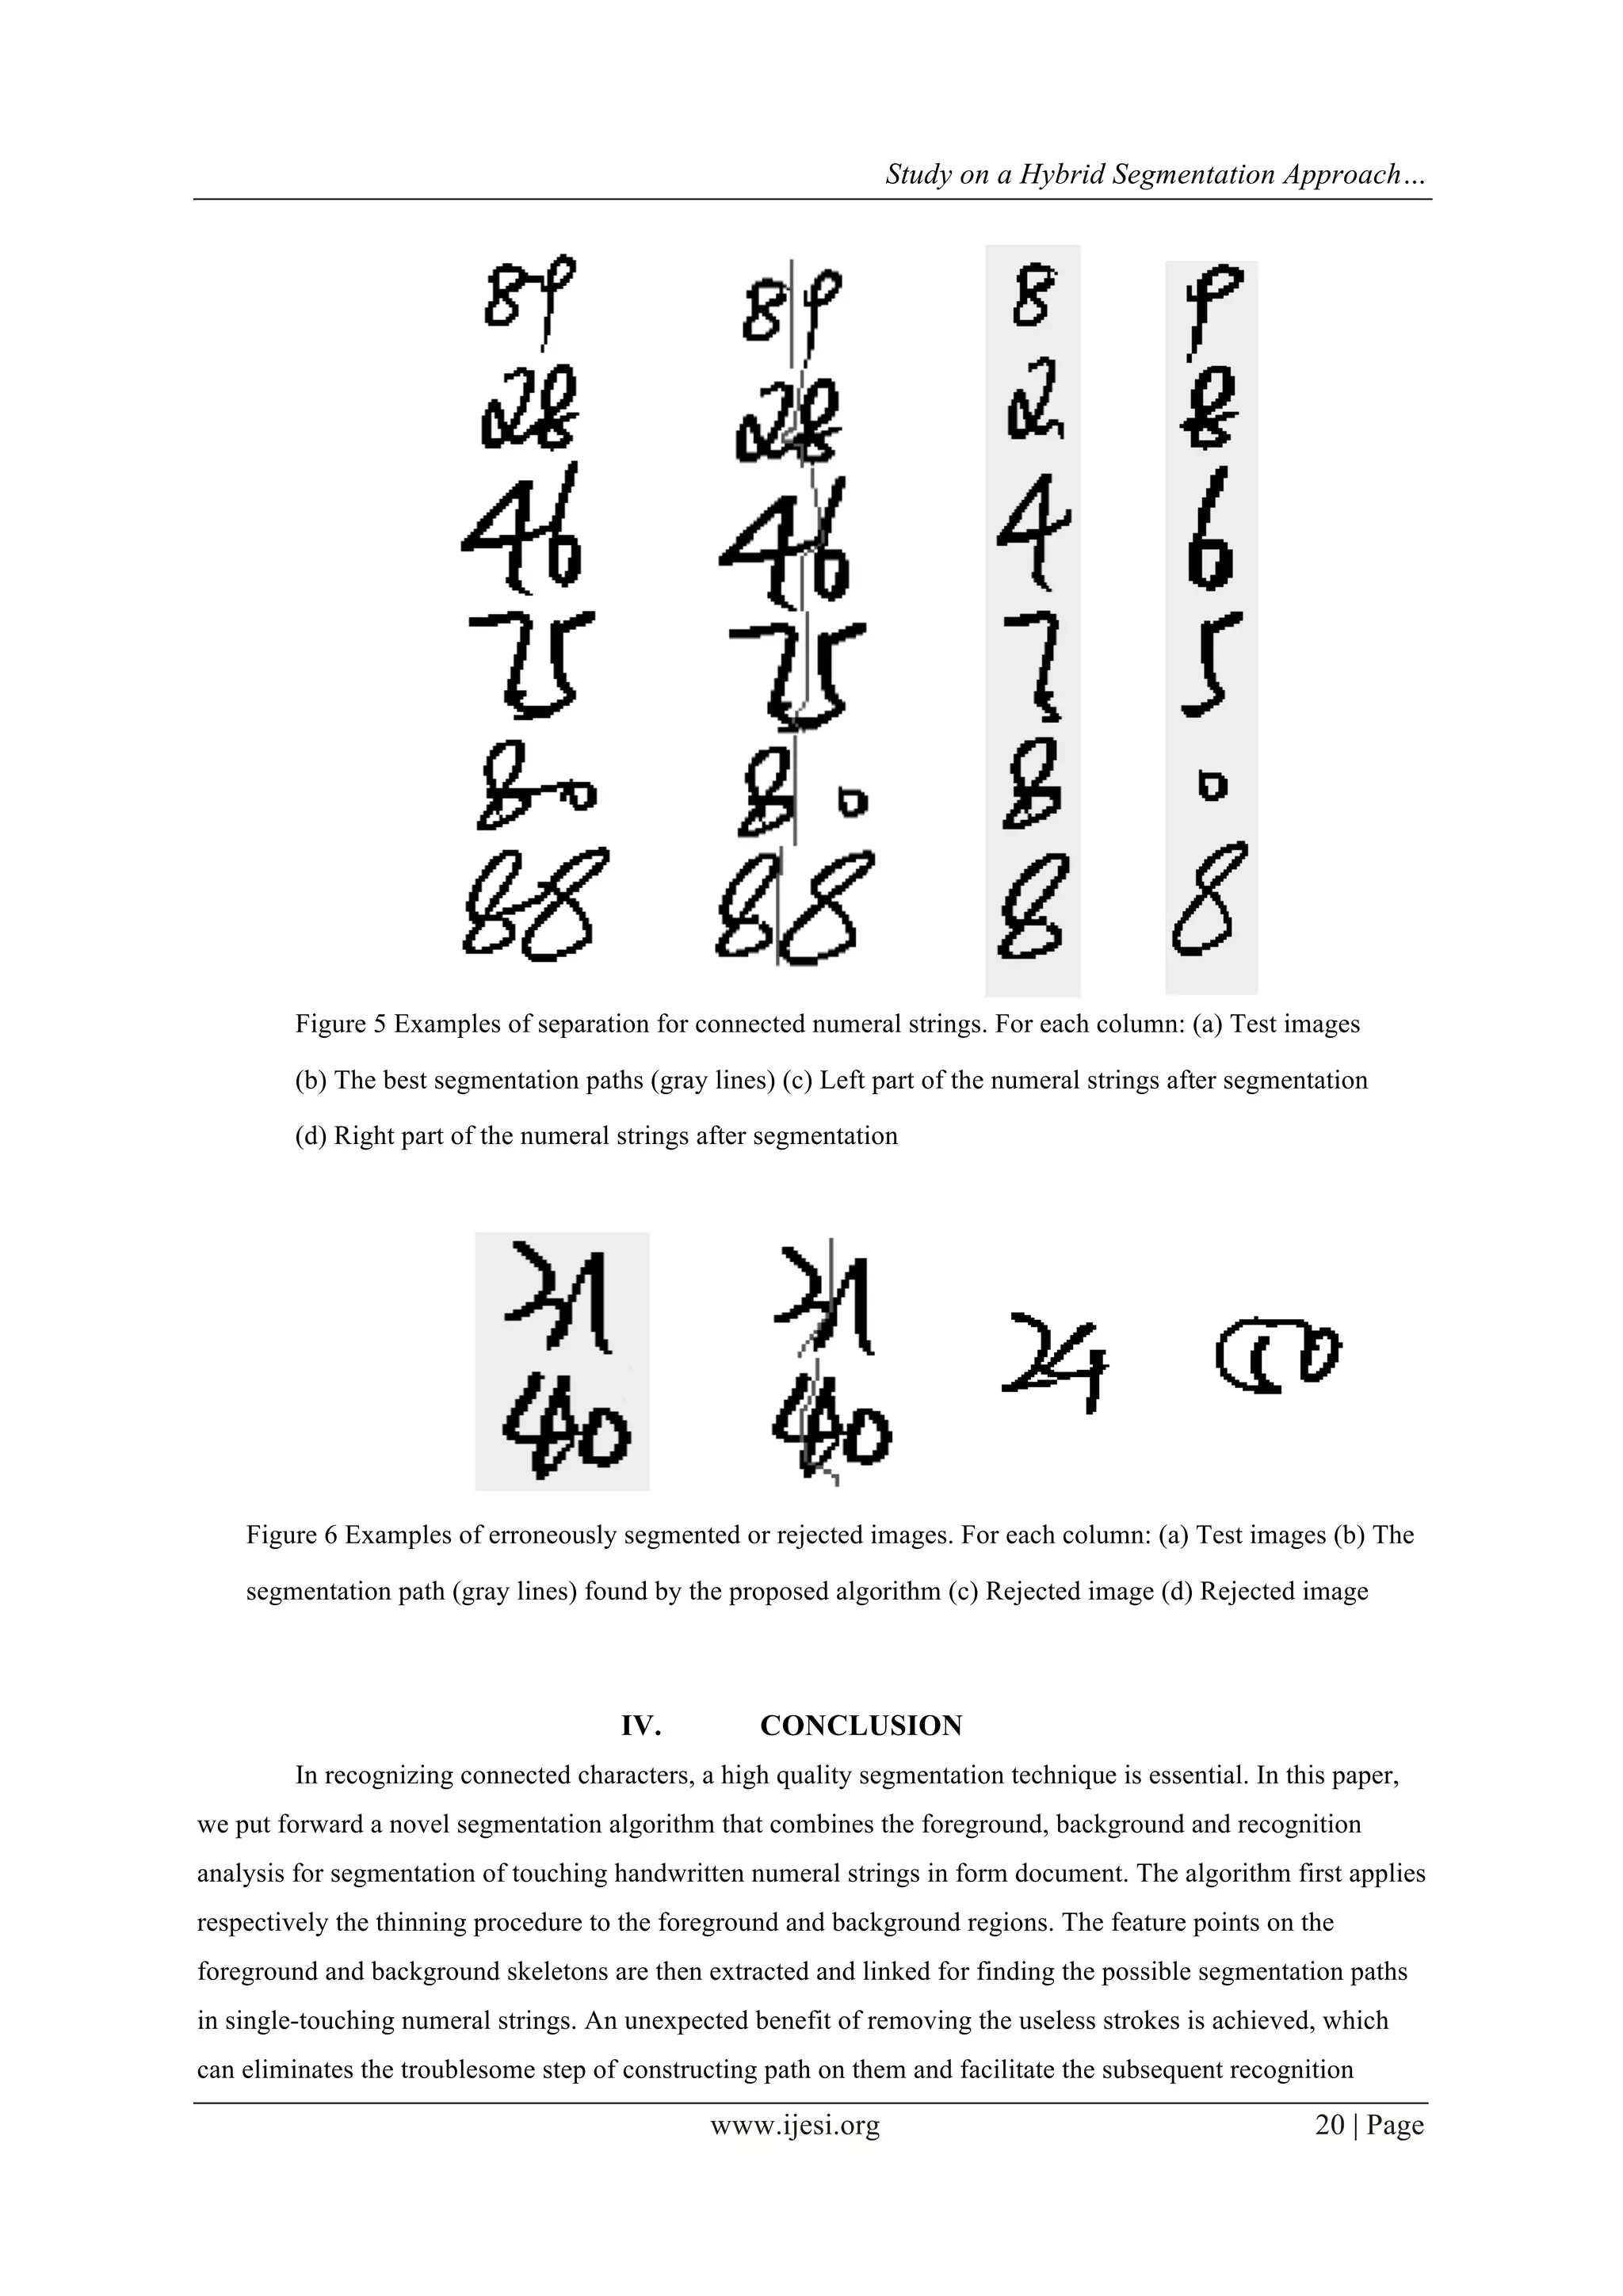 Study on a Hybrid Segmentation Approach…
89 89 8 9
28 28 2 8
46 46 4 6
75 75 7 5
80 80 8 0
88 88 8 8
Figure 5 Examples of separation for connected numeral strings. For each column: (a) Test images
(b) The best segmentation paths (gray lines) (c) Left part of the numeral strings after segmentation
(d) Right part of the numeral strings after segmentation
31 31 24 00
40 40
Figure 6 Examples of erroneously segmented or rejected images. For each column: (a) Test images (b) The
segmentation path (gray lines) found by the proposed algorithm (c) Rejected image (d) Rejected image
IV. CONCLUSION
In recognizing connected characters, a high quality segmentation technique is essential. In this paper,
we put forward a novel segmentation algorithm that combines the foreground, background and recognition
analysis for segmentation of touching handwritten numeral strings in form document. The algorithm first applies
respectively the thinning procedure to the foreground and background regions. The feature points on the
foreground and background skeletons are then extracted and linked for finding the possible segmentation paths
in single-touching numeral strings. An unexpected benefit of removing the useless strokes is achieved, which
can eliminates the troublesome step of constructing path on them and facilitate the subsequent recognition
www.ijesi.org 20 | Page